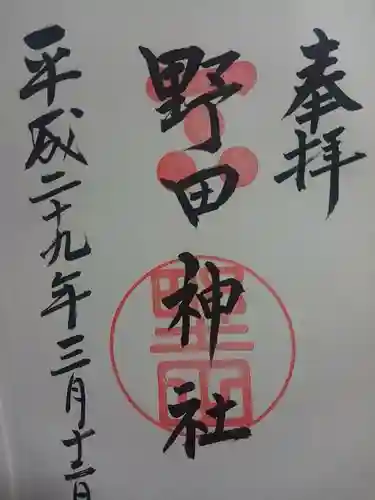 奉拝
野田神社
平成二十九年三月十二日
野田